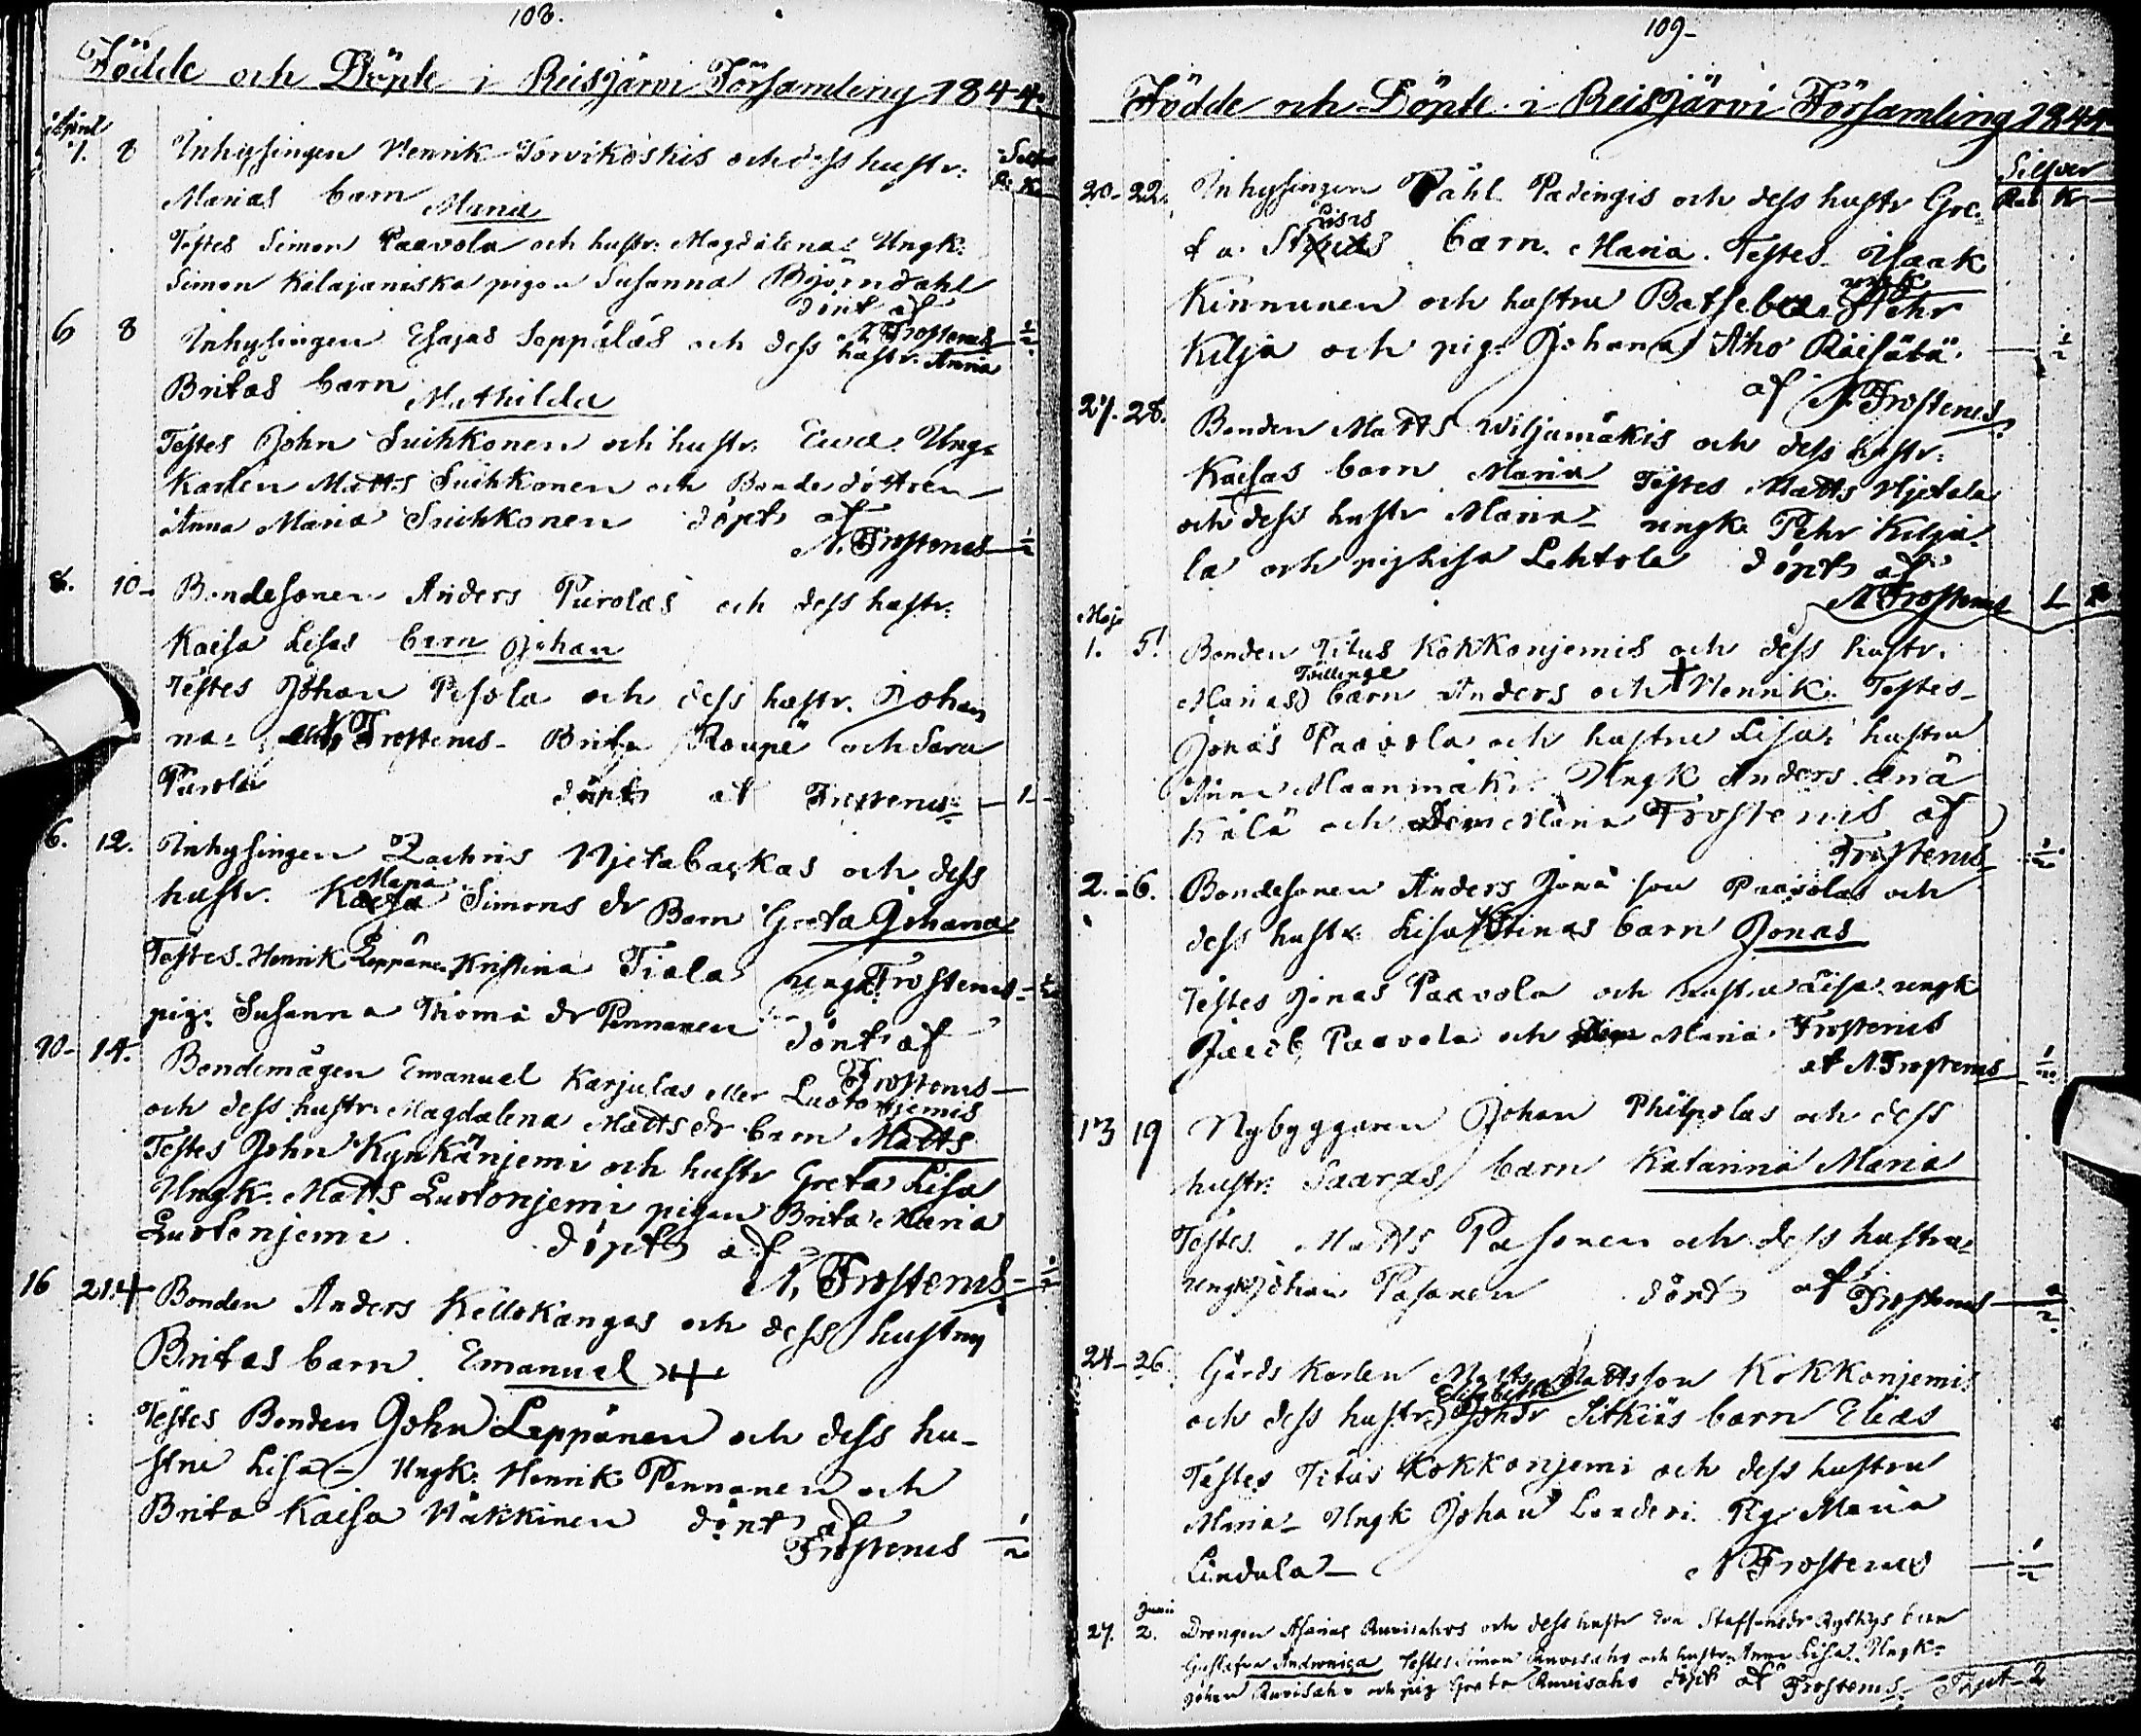 108.
Födde och Döpte i Reisjärvi Församling 1844.
April
1. 8 Inhysingen Henrik Torvikoskis och dess hustr.
Marias barn Maria
Testes Simon Paavola och hustr. Magdalena Ungk.
Simon Kilajaniska pigan Susanna Björndahl
döpt af
N Frostenus ½
6 8 Inhysingen Esajas Seppäläs och dess hustr. Anna
Britas barn Mathilda
Testes John Suihkonen och hustr. Ewa Ung-
karlen Matts Suihkonen och Bonde dottren
Anna Maria Suihkonen döpt af
N. Frostenus ½
8. 10 Bondesonen Anders Purolas och dess hustr.
Kaisa Lisas barn Johan
Testes Johan Pesola och dess hustr. Johan
na Frostenus Brita Roupe och Sara
Purola döpt af Frostenus 1
6. 12. Inhysingen Zachris Hjetabackas och dess
Maria
hustr. Kaisa Simons dr Barn Greta Johanna
Testes Henrik Leppäne Kristina Tiala ungk. Frostenus ½
pig. Susanna Thoma dr Pennanen döpt af
Frostenus
10 14. Bondemågen Emanuel Karjulas eller Luotonjemis
och dess hustr. Magdalena Matts dr barn Matts
Testes John Kynkänjemi och hustr Greta Lisa
Ungk. Matts Luotonjemi pigan Brita Maria
Luotonjemi döpt af
N. Frostenus ½
16 21 + Bonden Anders Kellokangas och dess hustru
Britas barn Emanuel +
Testes Bonden John Leppänen och dess hu-
stru Lisa - Ungk. Henrik Pennanen och
Brita Kaisa Häkkinen döpt af
Frostenus ½
109
Födde och Döpte i Reisjärvi Församling 1844
Silfver
Rub K
20 22. Inhysingen Påhl Padingis och dess hustr Gre-
Lisas
ta barn Maria. Testes Isaak
Kinnunen och hustru Batseba ungk Pehr
Kilja och pig. Johana Aho Räisälä ½
af N. Frostenus
27. 28. Bonden Matts Wiljamäkis och dess hustr.
Kaisas barn Maria Testes Matts Hjetala
och dess hustr Maria ungk. Pehr Kilja-
la och pig Lisa Lehtola döpt af
N Frostenus 1
Maji
1. 5. Bonden Titus Kokkonjemis och dess hustr.
Tvillinge
Marias barn Anders och + Henrik. Testes
Jonas Paavola och hustru Lisa; hustru
Anna Maanmäki. Ungk Anders
Kälä och Maria Frostenus af
Frostenus ½
2. 6. Bondesonen Anders Jona son Paavolas och
dess hustr. Lisa Stinas barn Jonas
Testes Jonas Paavola och hustru Lisa ungk
Jacob Paavola och Maria Frostenus
af N. Frostenus ½
13 19 Nybyggaren Johan Philpolas och dess
hustr. Saaras barn Katarina Maria
Testes. Matts Pasonen och dess hustru
ungk Johan Pasanen döpt af Frostenus ½
24 26. Gårds Karlen Matts Mattsson Kokkonjemis
Elisabeth
och dess hustr Johdr Sitkiäs barn Elias
Testes Titus Kokkonjemi och dess hustru
Maria - Ungk Johan Landeri Pig Maria
Lindula N Frostenus ½
Junii
27. 2. Drengen Asarias Ruuisahos och dess hustr Eva Staffansdr barn
Gustafva Andwniga Testes Simon Ruuisaho och hustr. Anna Lisa. Ungk.
Johan Ruuisaho och pig Greta Ruuisaho döpt af Frostenus